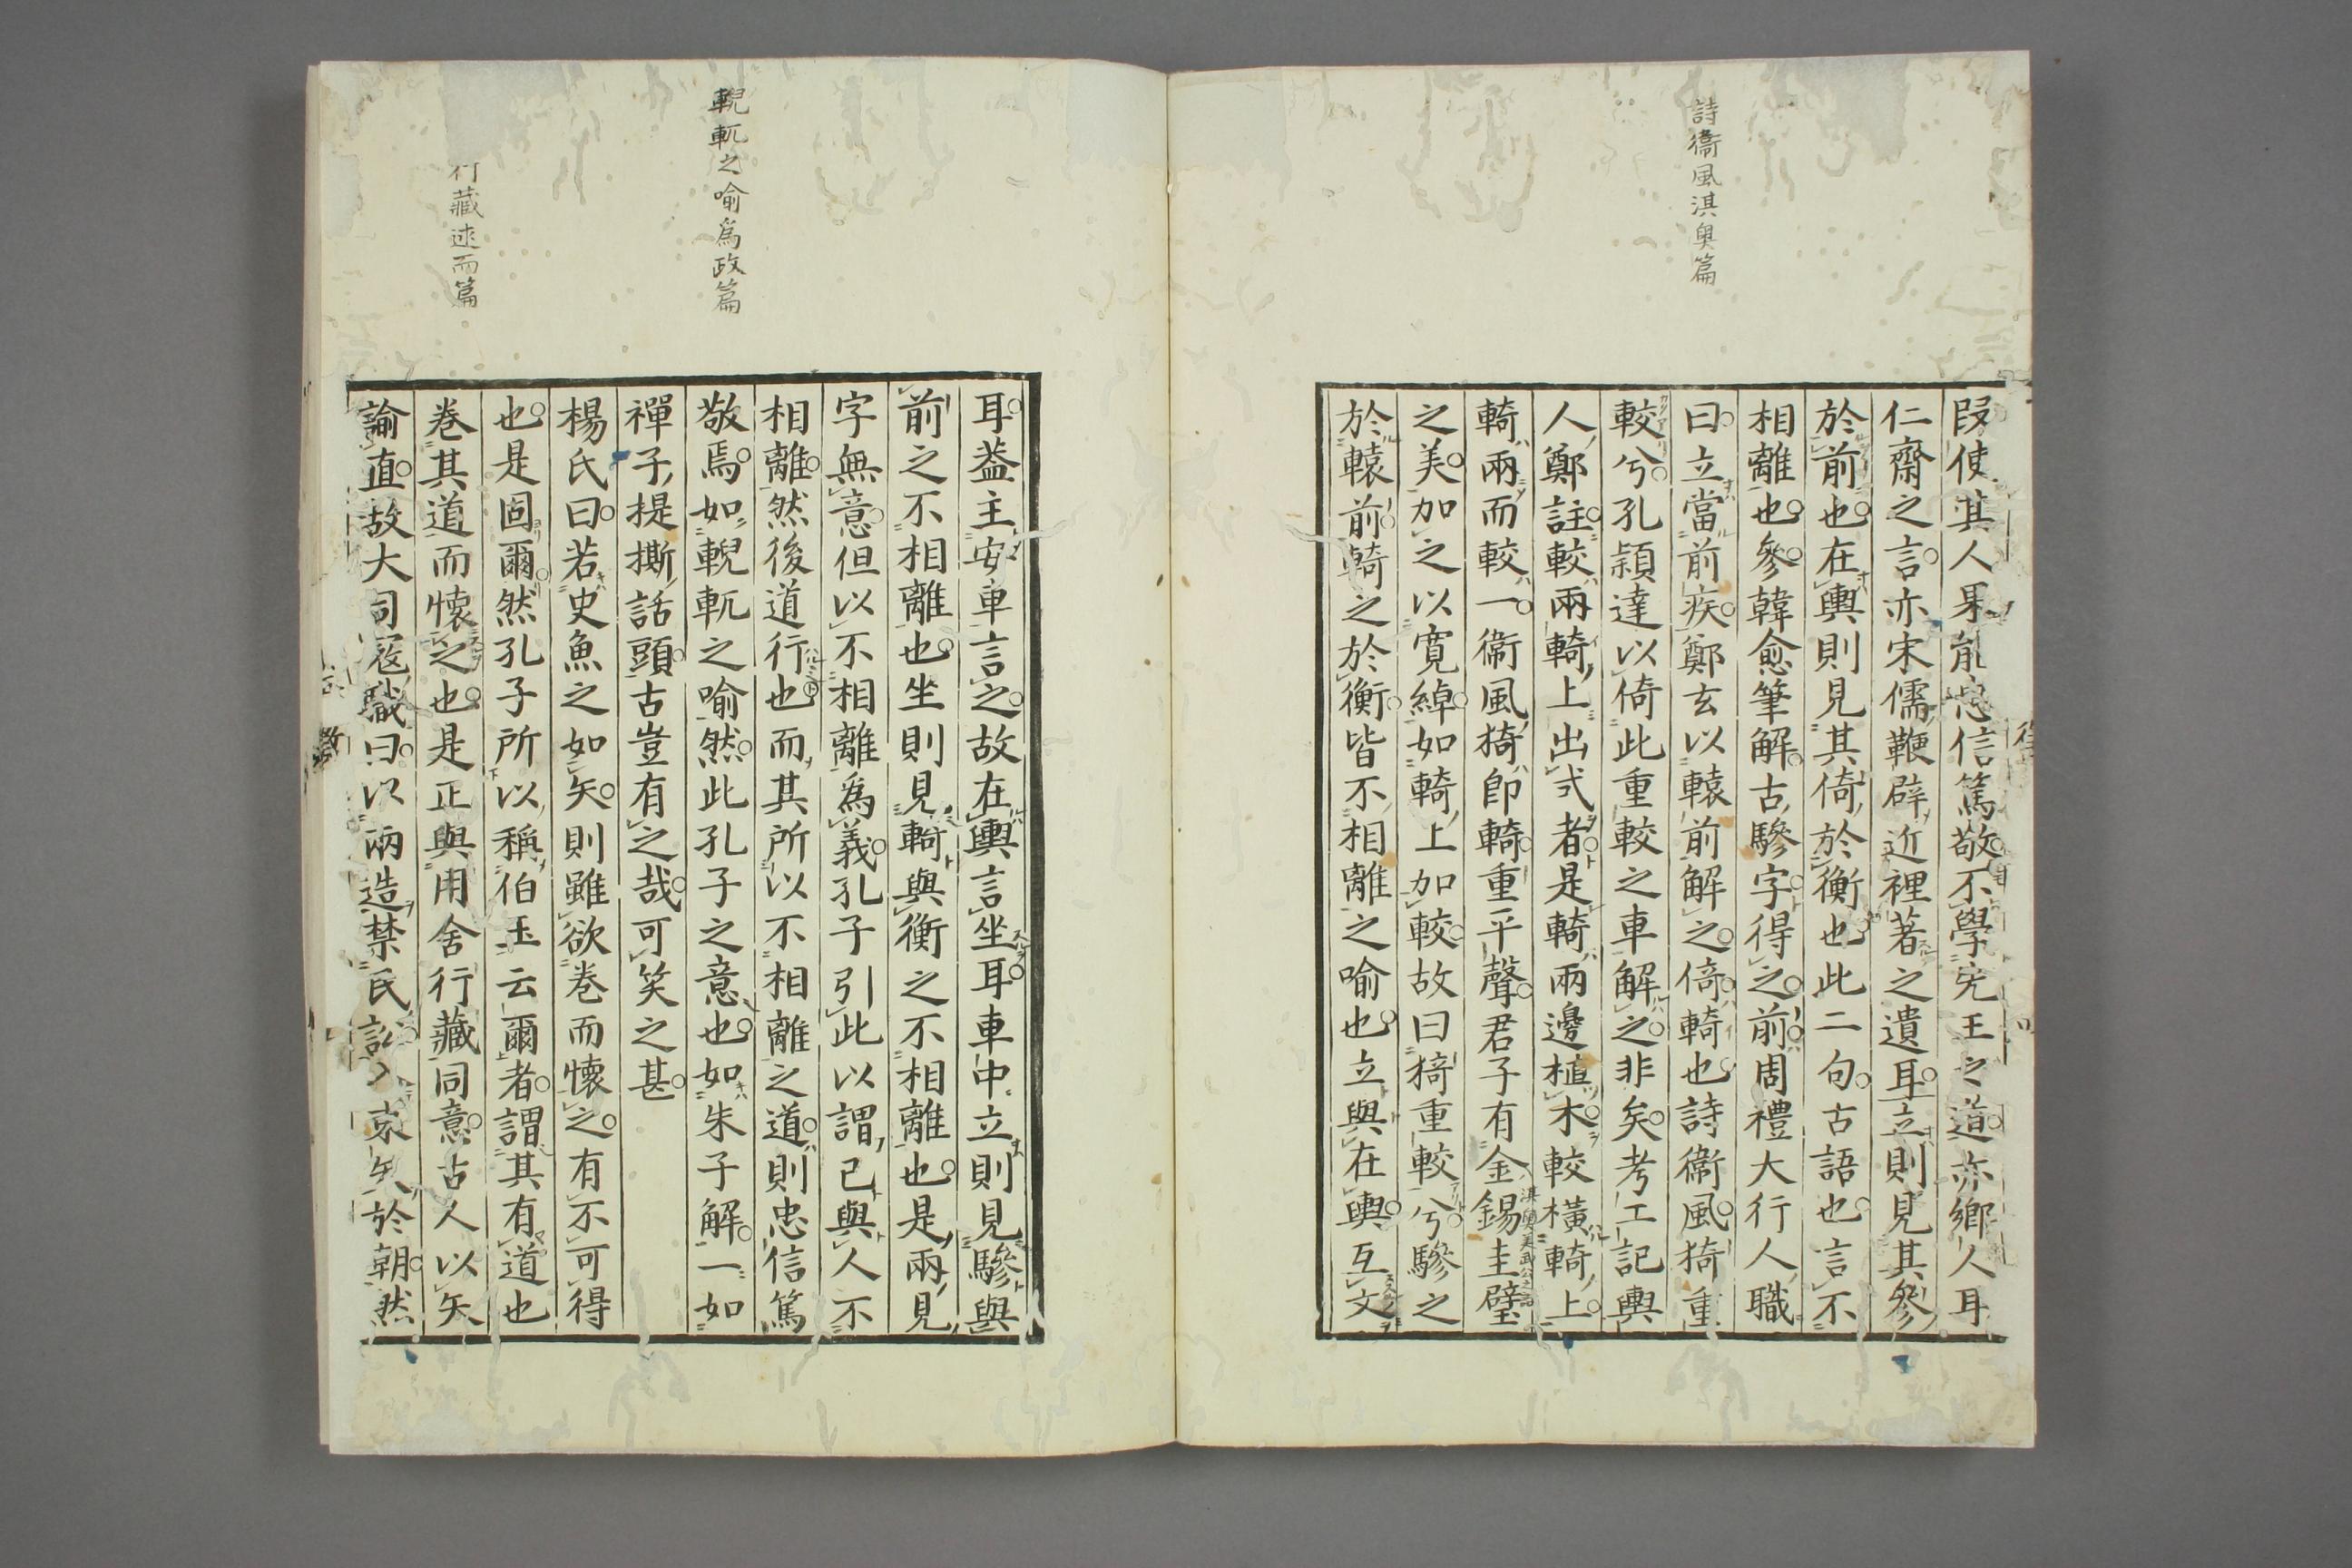 詩衞風淇奥篇
叚使其人果能忠信篤敬不學先王之道亦鄉人耳
仁齋之言亦宋儒鞭辟近裡著之遺耳立則見其參
於前也在輿則見其倚於衡也此二句古語也言不
相離也參韓愈筆解古驂字得之前周禮大行人職
曰立當前疾鄭玄以轅前解之倚輢也詩衞風猗重
較兮孔穎達以倚此重較之車解之非矣考工記輿
人鄭註較兩輢上出式者是輢兩邊植木較橫輢上
輢兩而較一衞風猗即輢重平聲君子有金錫圭璧
之美加之以寬綽如輢上加較故曰猗重較兮驂之
於轅前輢之於衡皆不相離之喻也立與在輿互文
輗軏之喻爲政篇
行藏述而篇
耳葢主安車言之故在輿言坐耳車中立則見驂與
前之不相離也坐則見輢與衡之不相離也是兩見
字無意但以不相離爲義孔子引此以謂己與人不
相離然後道行也而其所以不相離之道則忠信篤
敬焉如輗軏之喻然此孔子之意也如朱子解一如
禪子提撕話頭古豈有之哉可笑之甚
楊氏曰若史魚之如矢則雖欲卷而懷之有不可得
也是固爾然孔子所以稱伯玉云爾者謂其有道也
卷其道而懷之也是正與用舍行藏同意古人以矢
諭直故大司寇職曰以兩造禁民訟入束矢於朝然